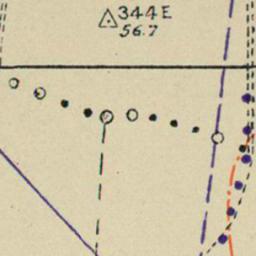 344E
56.7